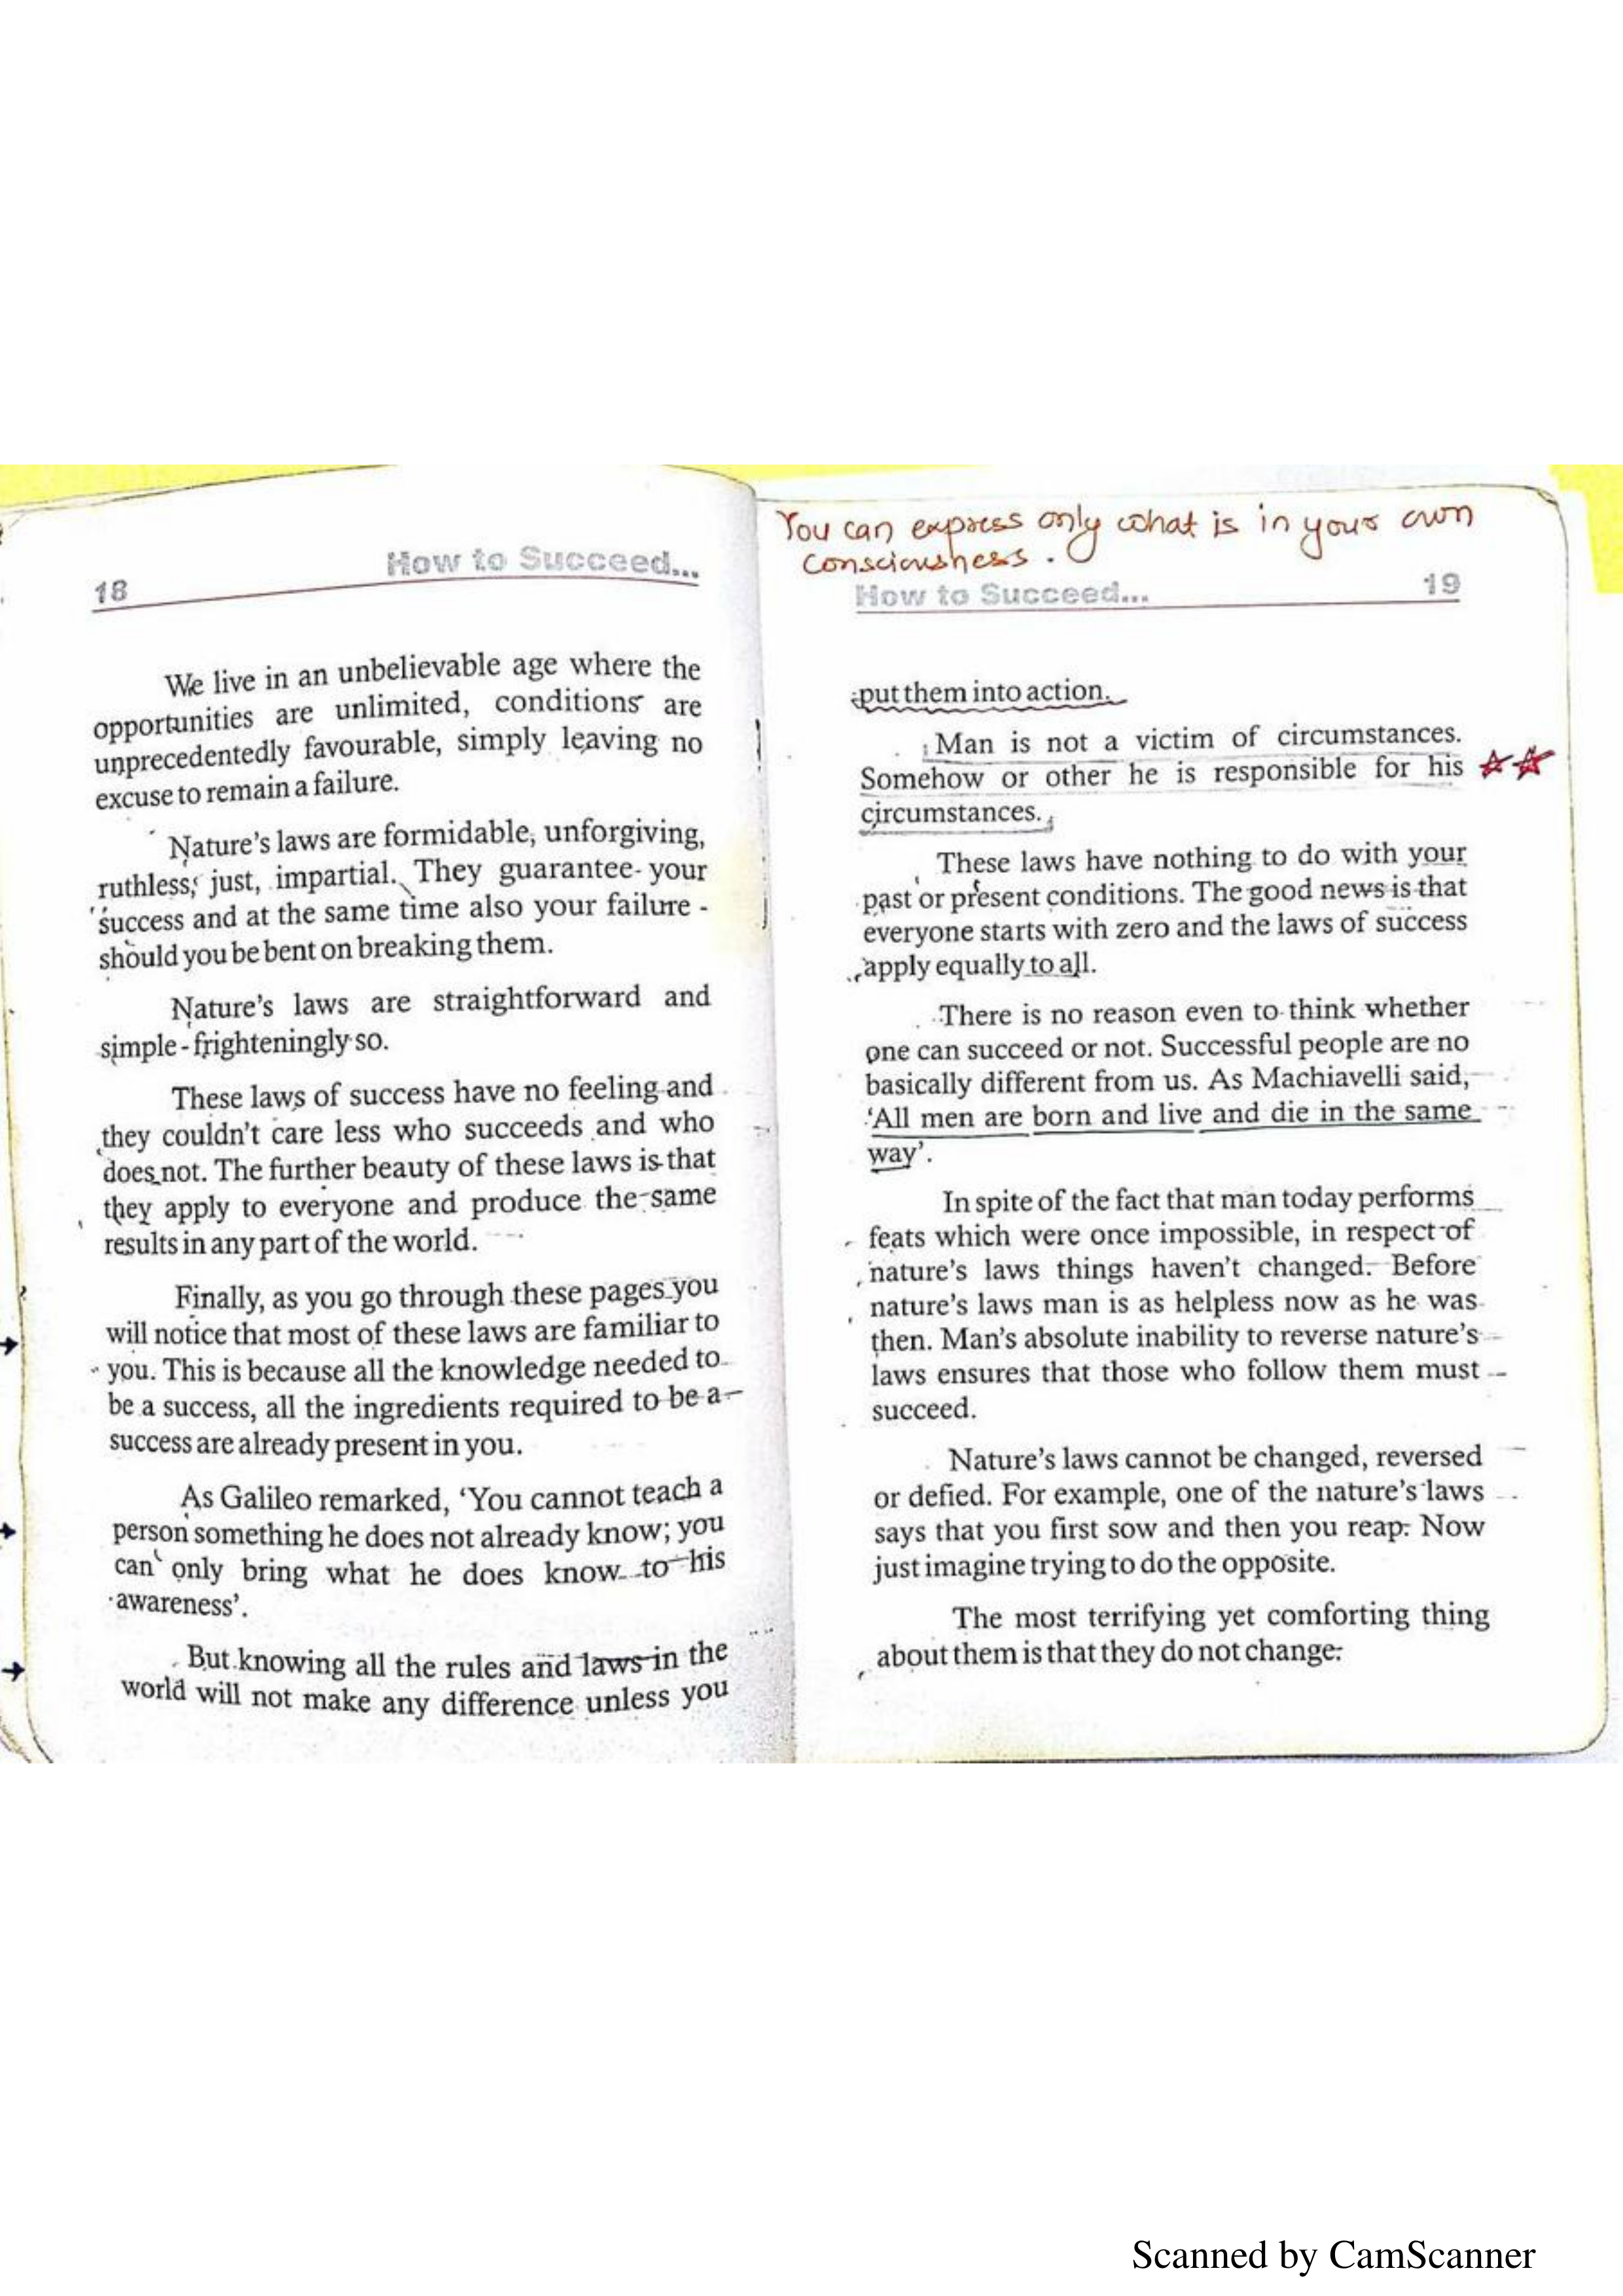 18
How to Succeed...
We live in an unbelievable age where the
opportunities are unlimited, conditions are
unprecedentedly favourable, simply leaving no
excuse to remain a failure.
Nature's laws are formidable, unforgiving,
ruthless, just, impartial. They guarantee your
success and at the same time also your failure -
should you be bent on breaking them.
Nature's laws are straightforward and
simple - frighteningly so.
These laws of success have no feeling and
they couldn't care less who succeeds and who
does not. The further beauty of these laws is that
they apply to everyone and produce the same
results in any part of the world.
Finally, as you go through these pages you
will notice that most of these laws are familiar to
you. This is because all the knowledge needed to
be a success, all the ingredients required to be a
success are already present in you.
As Galileo remarked, 'You cannot teach a
person something he does not already know; you
can only bring what he does know to his
awareness'.
But knowing all the rules and laws in the
world will not make any difference unless you
You can express only what is in your own
consciousness.
How to Succeed...
19
put them into action.
Man is not a victim of circumstances.
Somehow or other he is responsible for his
circumstances.
These laws have nothing to do with your
past or present conditions. The good news is that
everyone starts with zero and the laws of success
apply equally to all.
There is no reason even to think whether
one can succeed or not. Successful people are no
basically different from us. As Machiavelli said,
'All men are born and live and die in the same
way'.
In spite of the fact that man today performs
feats which were once impossible, in respect of
nature's laws things haven't changed. Before
nature's laws man is as helpless now as he was
then. Man's absolute inability to reverse nature's
laws ensures that those who follow them must
succeed.
Nature's laws cannot be changed, reversed
or defied. For example, one of the nature's laws
says that you first sow and then you reap. Now
just imagine trying to do the opposite.
The most terrifying yet comforting thing
about them is that they do not change.
Scanned by CamScanner